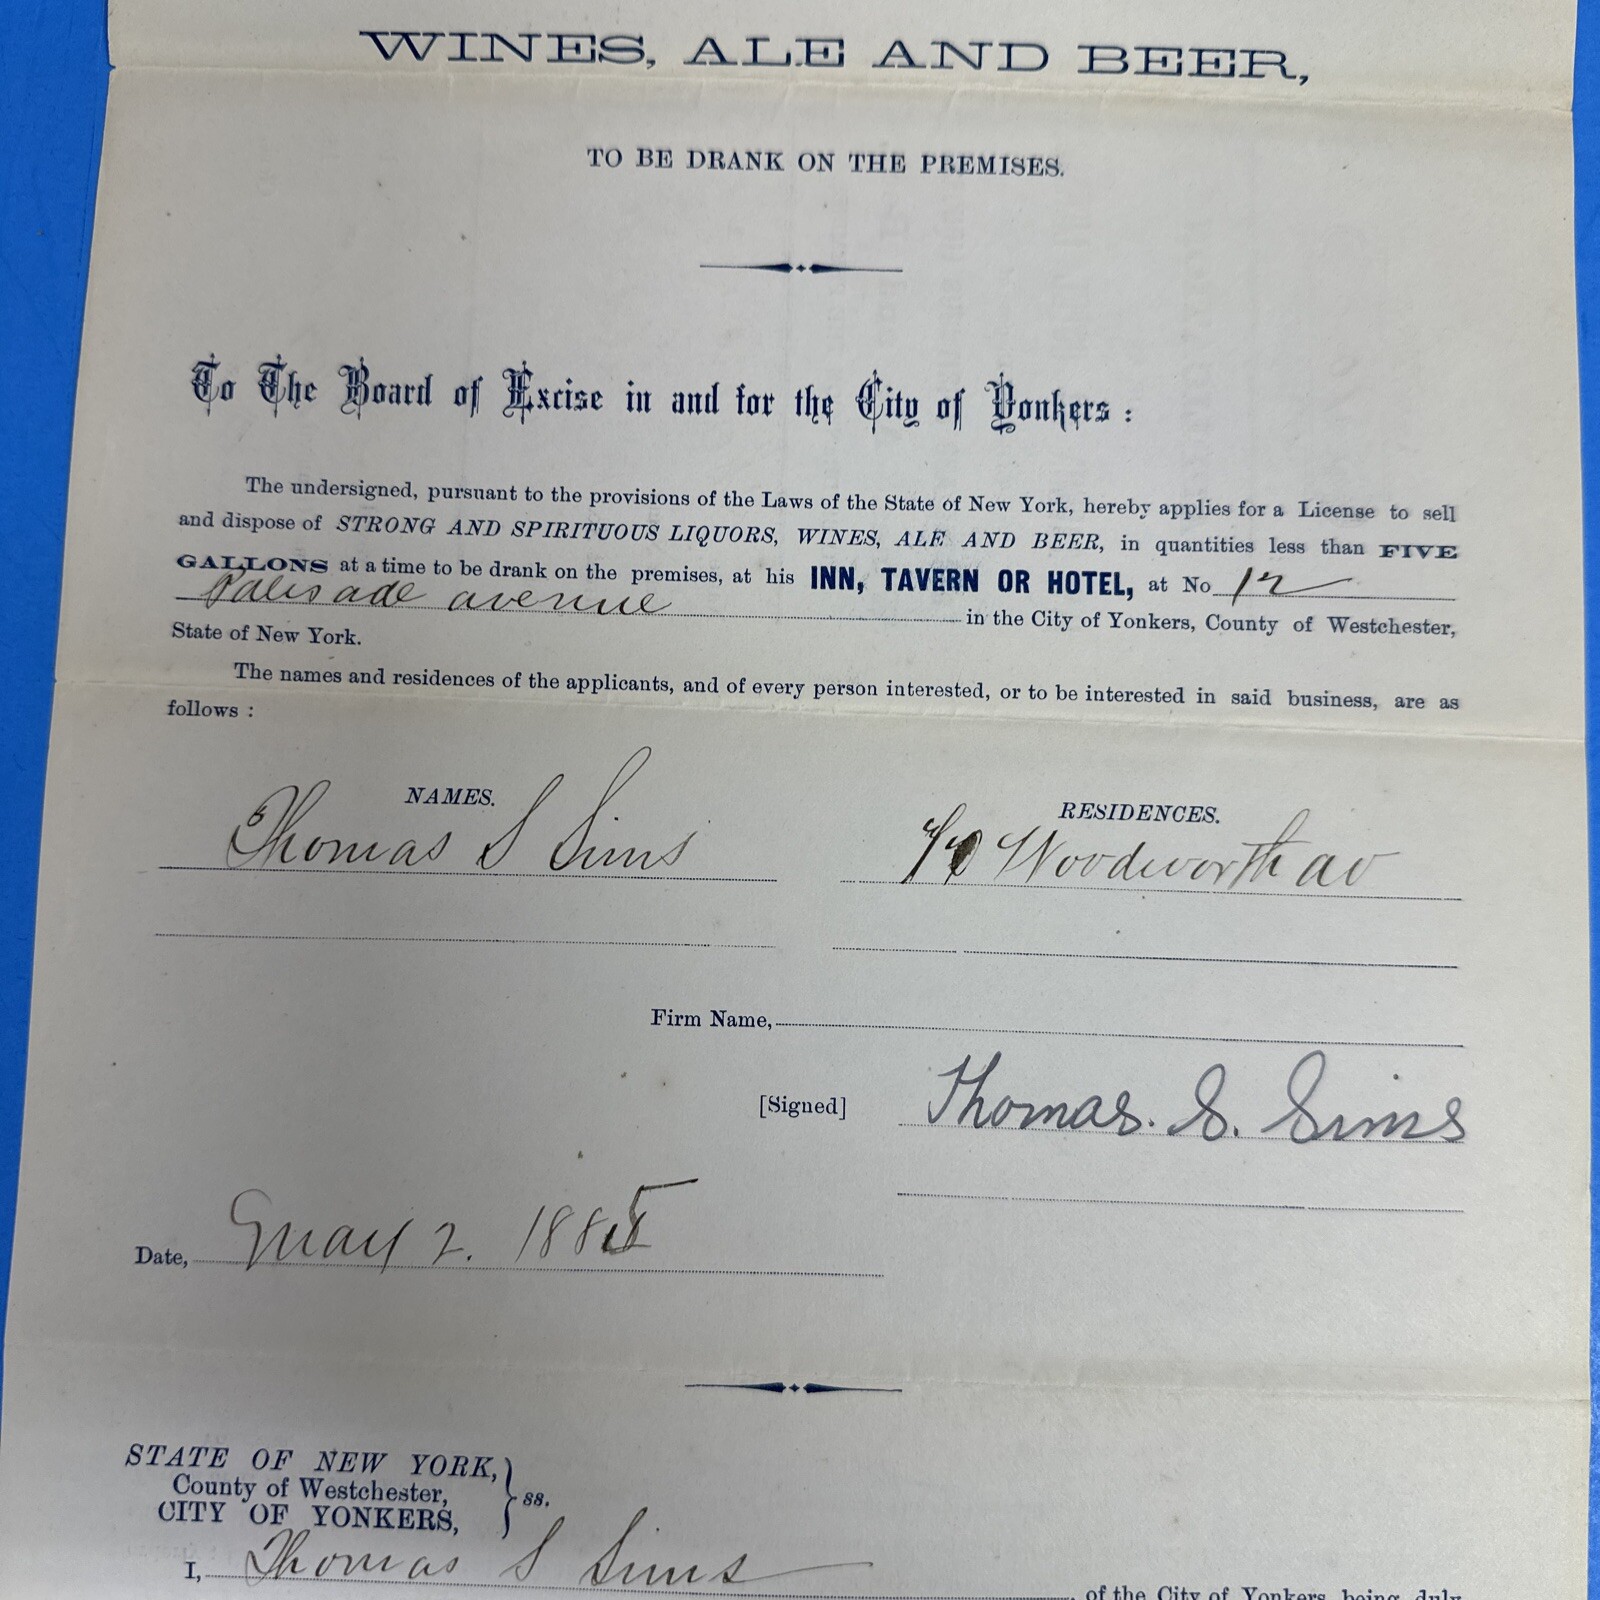 WINES, ALE AND BEER,
TO BE DRANK ON THE PREMISES.
To The Board of Excise in and for the City of Yonkers :
The undersigned, pursuant to the provisions of the Laws of the State of New York, hereby applies for a License to sell
and dispose of STRONG AND SPIRITUOUS LIQUORS, WINES, ALE AND BEER, in quantities less than FIVE
GALLONS at a time to be drank on the premises, at his INN, TAVERN OR HOTEL, at No 12
Palisade avenue in the City of Yonkers, County of Westchester,
State of New York.
The names and residences of the applicants, and of every person interested, or to be interested in said business, are as
follows :
NAMES. RESIDENCES.
Thomas S Sims Woodworth av
Firm Name,
[Signed] Thomas. S. Sims
Date, May 2. 1885
STATE OF NEW YORK,
County of Westchester, ss.
CITY OF YONKERS,
I, Thomas S Sims
of the City of Yonkers being duly